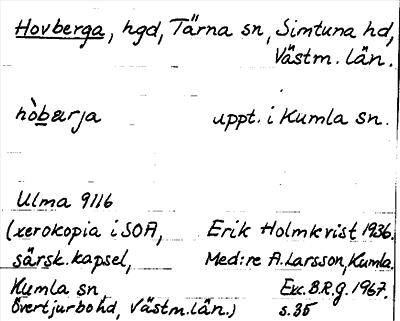 Hovberga, hgd, Tärna sn, Simtuna hd,
Västm. län.
hò̲bærja uppt. i Kumla sn.
Ulma 9116
(xerokopia i SOA, Erik Holmkvist 1936.
särsk. kapsel, Med:re A. Larsson, Kumla.
Kumla sn Exc. B.R.g. 1967.
Övertjurbo hd, Västm. län.) s. 35